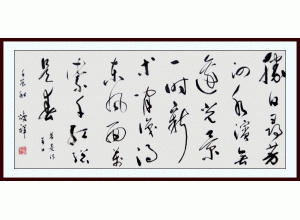 勝日尋芳
泗水濱無
邊光景
一時新
等閒識得
東風面萬
紫千紅總
是春
春日
壬辰秋